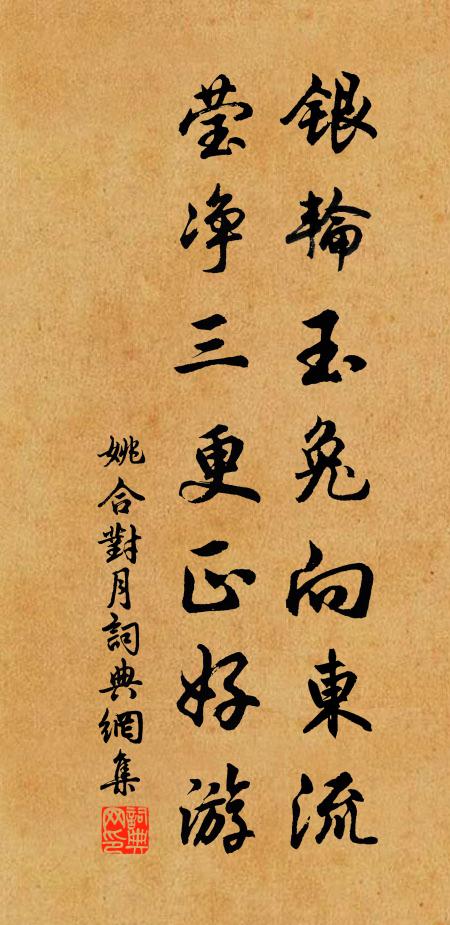 銀輪玉兔向東流
莹淨三更正好游
姚合對月詞典網集
詞典网印